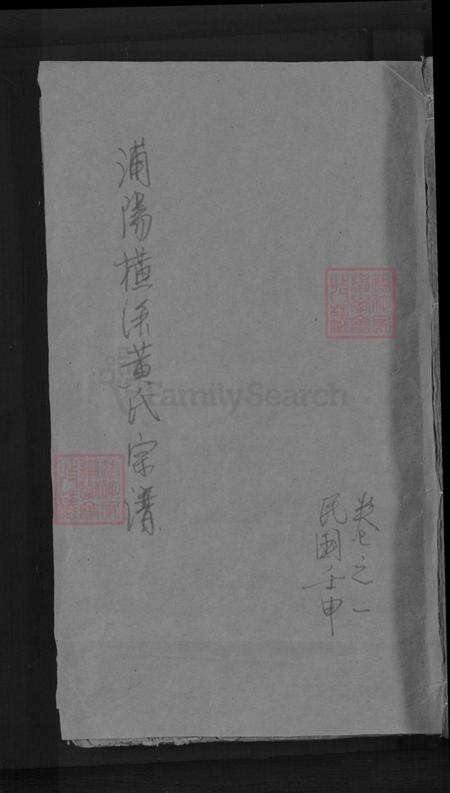 浦陽橫溪黃氏宗譜
卷之一
民國壬申
FamilySearch